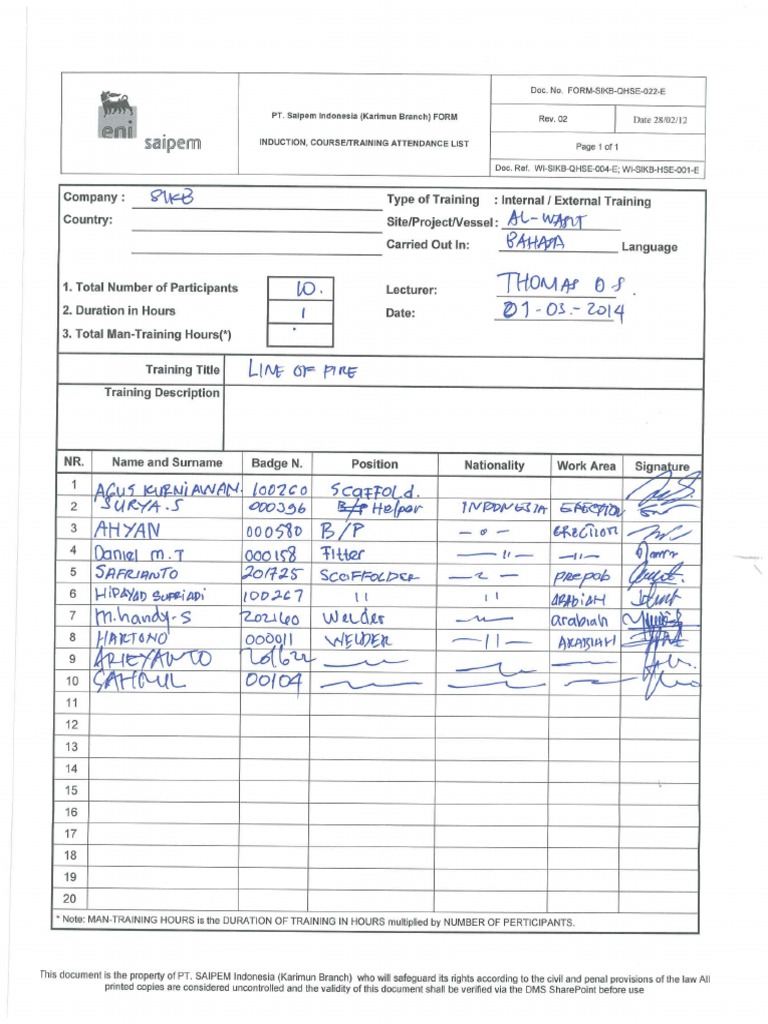 eni
saipem
PT. Saipem Indonesia (Karimun Branch) FORM
INDUCTION, COURSE/TRAINING ATTENDANCE LIST
Doc. No. FORM-SIKB-QHSE-022-E
Rev. 02 Date 28/02/12
Page 1 of 1
Doc. Ref. WI-SIKB-QHSE-004-E; WI-SIKB-HSE-001-E
Company : SIKB Type of Training : Internal / External Training
Country: Site/Project/Vessel: AL-WASIT
Carried Out In: BAHASA Language
1. Total Number of Participants 10. Lecturer: THOMAS D S.
2. Duration in Hours 1 Date: 01-03.-2014
3. Total Man-Training Hours(*)
Training Title LINE OF FIRE
Training Description
NR. Name and Surname Badge N. Position Nationality Work Area Signature
1 AGUS KURNIAWAN. 100260 Scaffold.
2 SURYA.S 000396 Helper INDONESIA ERECTION
3 AHYAN 000580 B/P - 0 - ERECTION
4 Daniel m.T 000158 Fitter - 11 - - 11 -
5 SAFRIANTO 201725 SCAFFOLDER prepab
6 HIDAYAD SUPRIADI 100267 11 11 ARABIAH
7 M.handy-S 202160 Welder arabiah
8 HARTONO 000911 WELDER - 11 - ARABIAH
9 ARIEYANTO
10 00104
11
12
13
14
15
16
17
18
19
20
* Note: MAN-TRAINING HOURS is the DURATION OF TRAINING IN HOURS multiplied by NUMBER OF PERTICIPANTS.
This document is the property of PT. SAIPEM Indonesia (Karimun Branch) who will safeguard its rights according to the civil and penal provisions of the law All
printed copies are considered uncontrolled and the validity of this document shall be verified via the DMS SharePoint before use